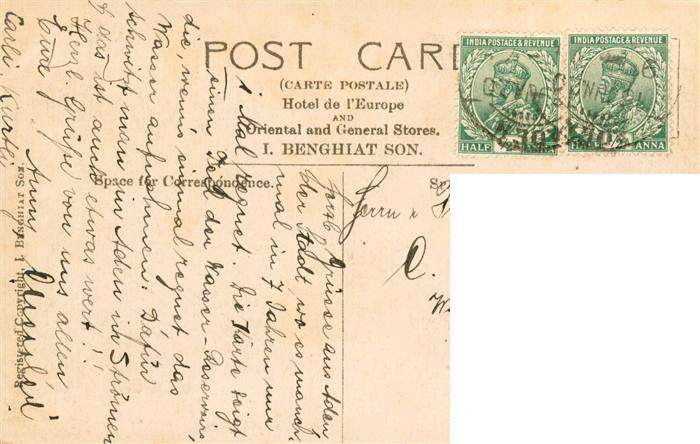 POST CARD
(CARTE POSTALE)
Hotel de l'Europe
AND
Oriental and General Stores.
I. BENGHIAT SON.
INDIA POSTAGE & REVENUE
HALF ANNA
INDIA POSTAGE & REVENUE
HALF ANNA
Space for Correspondence.
Herrn
Grüsse aus Aden
der Stadt wo es manch-
mal in 7 Jahren nur
1 Mal regnet. Die Karte zeigt
einen Teil der Wasser-Reservoirs,
die, wenns einmal regnet das
Wasser aufnehmen. Dafür
schwitzt man in Aden in Strömen
& das ist auch etwas wert!!
Herzl. Grüsse von uns allen
Eure
Anny
Carli, Kurtli
Registered Copyright, I. BENGHIAT SON.